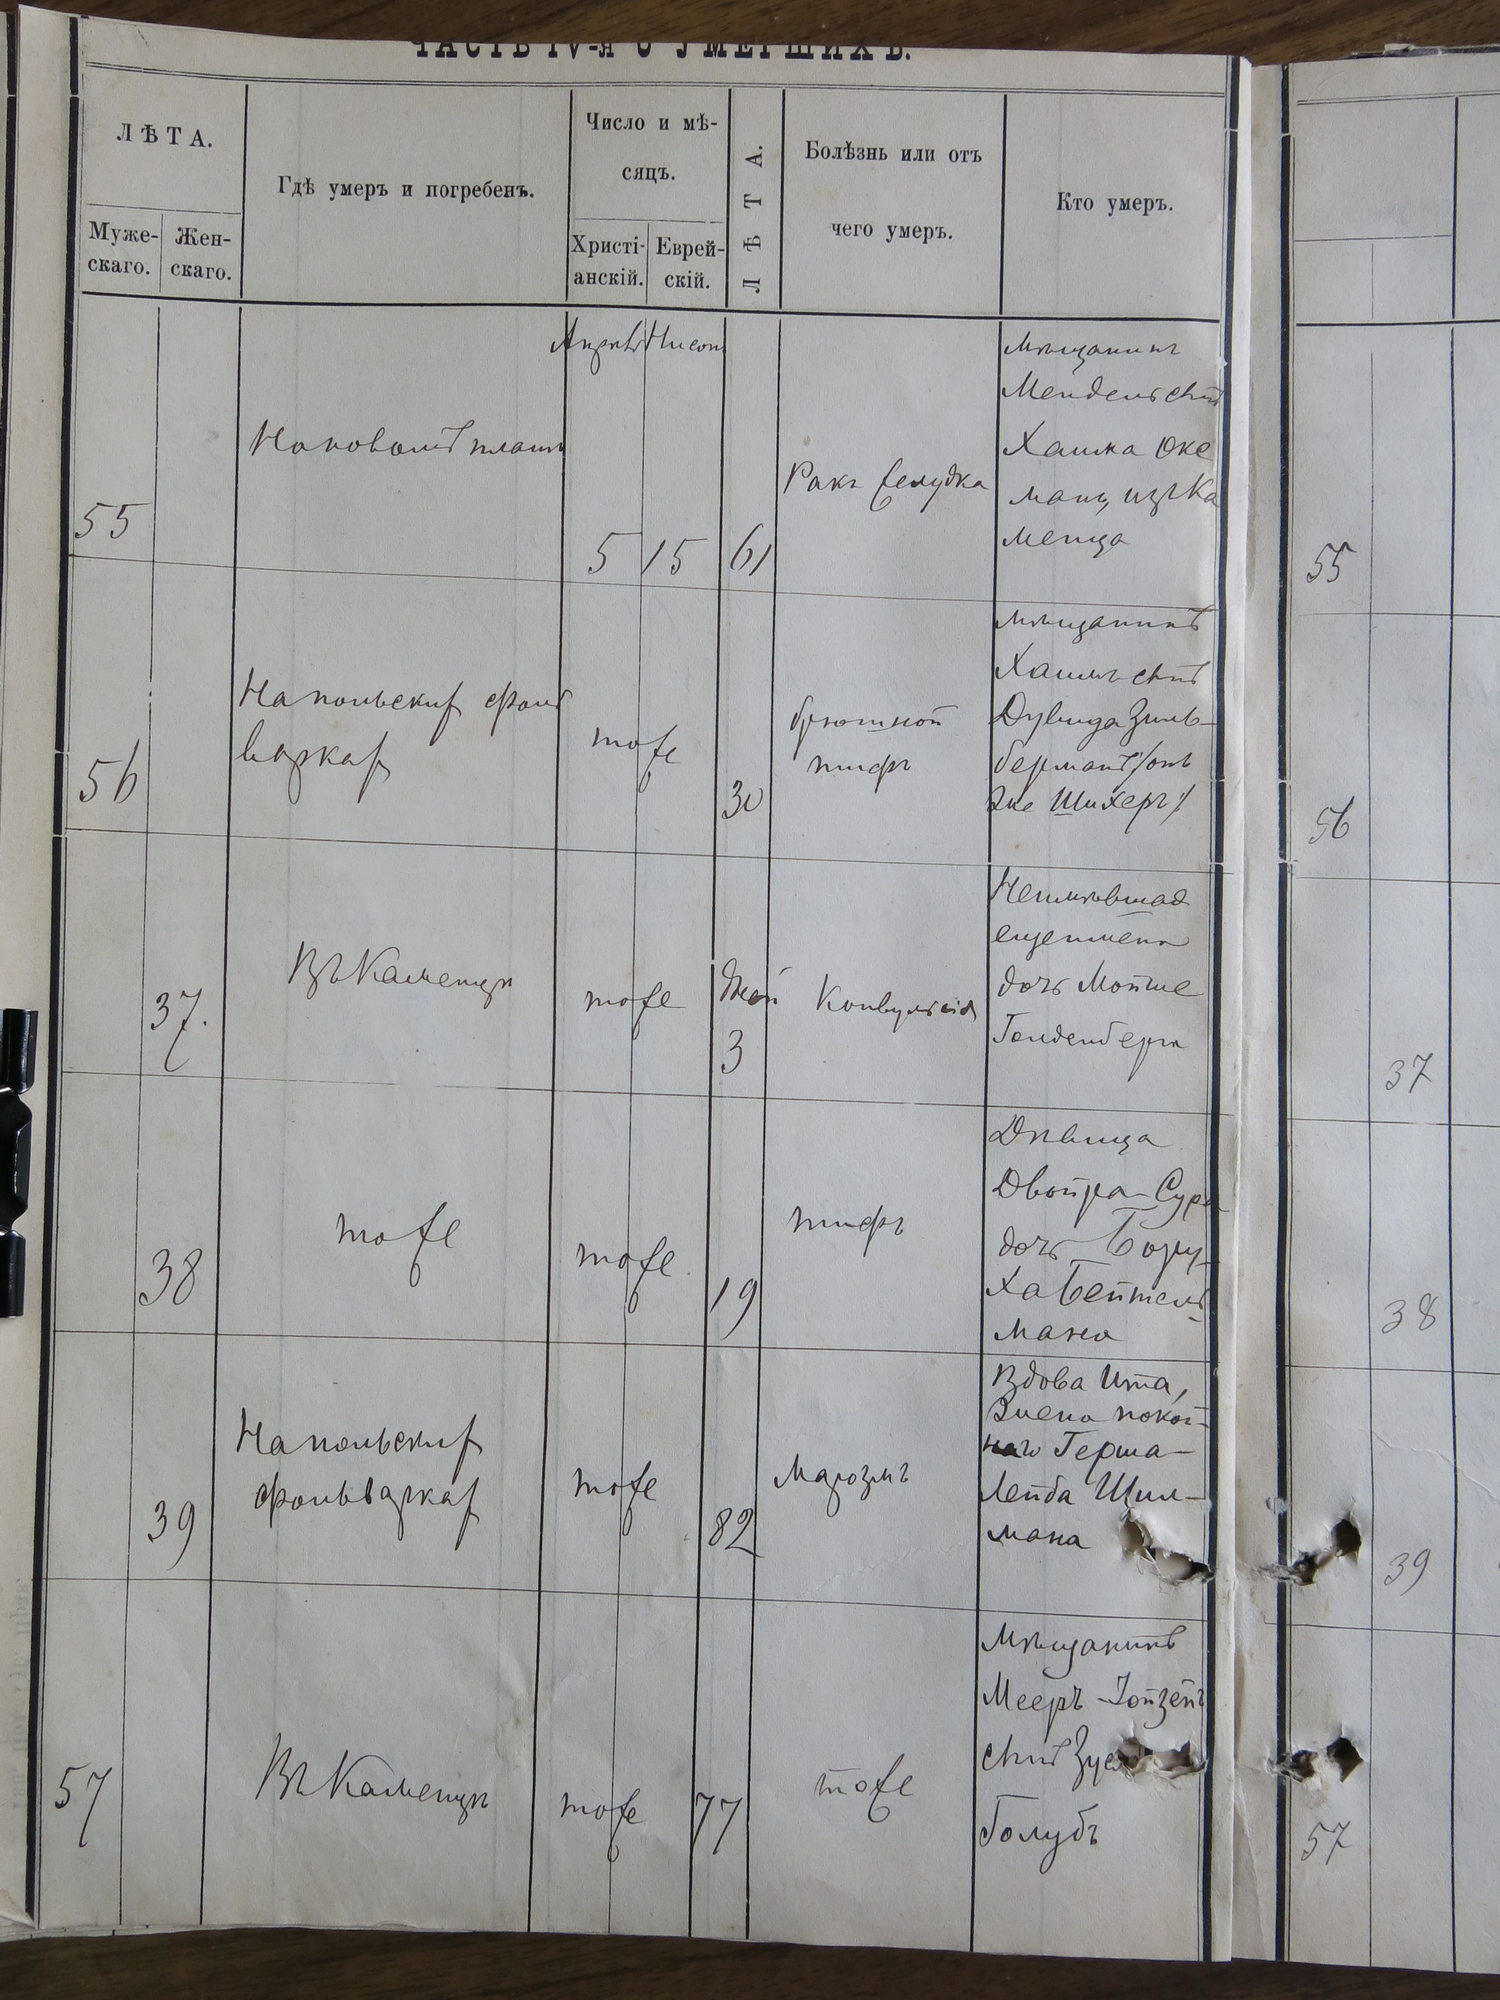 ЧАСТЬ IV-я О УМЕРШИХЪ.
ЛѢТА.
Муже-
скаго.
Жен-
скаго.
Гдѣ умеръ и погребенъ.
Число и мѣ-
сяцъ.
Христі-
анскій.
Еврей-
скій.
ЛѢТА.
Болѣзнь или отъ
чего умеръ.
Кто умеръ.
55
На новомъ планѣ
Апрель Нисонъ
5 15 61
Ракъ желудка
Мѣщанинъ
Мендель сынъ
Хаима Оке
манъ, изъ Ка
менца
55
56
На польских фоль
варках
тоже
30
брюшной
тифъ
Мѣщанинъ
Хаимъ сынъ
Дувида Зиль-
берманъ /онъ
же Шихеръ/
56
37.
Въ Каменцѣ
тоже
дней
3
Конвульсія
Неимѣвшая
еще имени
дочь Мойше
Гольденберга
37
38
тоже
тоже
19
тифъ
Дѣвица
Двойра-Сура
дочь Бору-
ха Бейтель-
мана
38
39
На польских
фольварках
тоже
82
Маразмъ
Вдова Ита,
жена покой-
наго Герша-
Лейба Шил-
мана
39
57
Въ Каменцѣ
тоже
77
тоже
Мѣщанинъ
Мееръ-Іойзепъ
сынъ
Голубъ
57